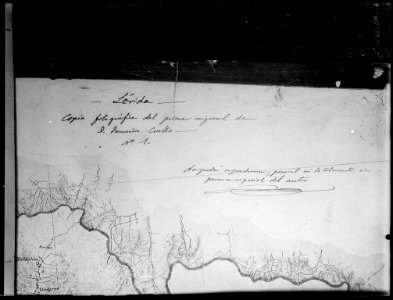 — Lérida —
Copia fotográfica del primer original de
D. Francisco Coello
Nº 1.
No podrá reproducirse, parcial ni totalmente sin
permiso especial del autor